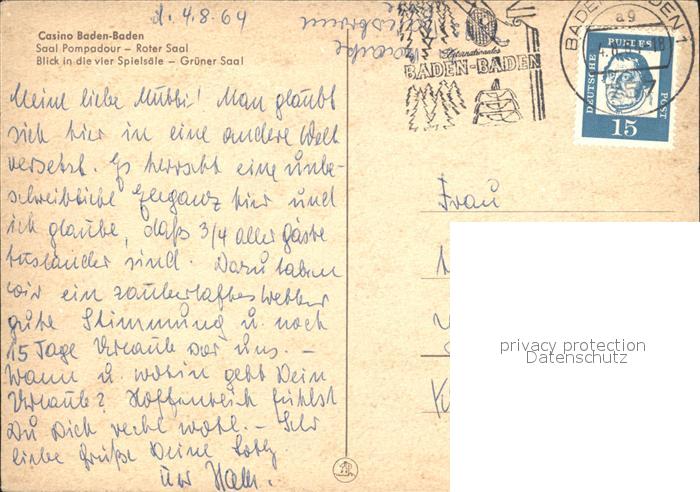 d. 4.8.64
Casino Baden-Baden
Saal Pompadour – Roter Saal
Blick in die vier Spielsäle – Grüner Saal
Meine liebe Mutti! Man glaubt
sich hier in eine andere Welt
versetzt. Es herrscht eine unbe-
schreibliche Eleganz hier und
ich glaube, daß 3/4 aller Gäste
Ausländer sind. Dazu haben
wir ein zauberhaftes Wetter
gute Stimmung u. noch
15 Tage Urlaub vor uns. –
Wann u. wohin geht Dein
Urlaub? Hoffentlich fühlst
Du Dich recht wohl. – Sehr
liebe Grüße Deine
Internationales
BADEN-BADEN
BADEN-BADEN 1
ag
DEUTSCHE BUNDESPOST
15
Frau
privacy protection
Datenschutz